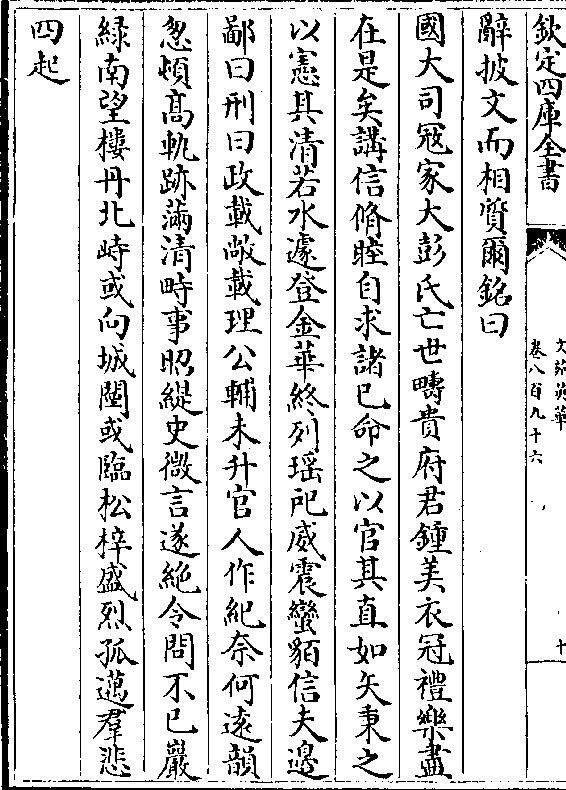 欽定四庫全書
文苑英華
卷八百九十六
十
辭披文而相質爾銘曰
國大司冦家大彭氏亡世疇貴府君鍾美衣冠禮樂盡
在是矣講信脩睦自求諸已命之以官其直如矢秉之
以憲其清若水遽登金華終列瑶祀威震蠻貊信夫邊
鄙曰刑曰政載敞載理公輔未升官人作紀奈何逺韻
怱頓髙軌跡滿清時事昭緹史微言遂絶令問不已巖
緑南望樓丹北峙或向城闉或臨松梓盛烈孤邁羣悲
四起